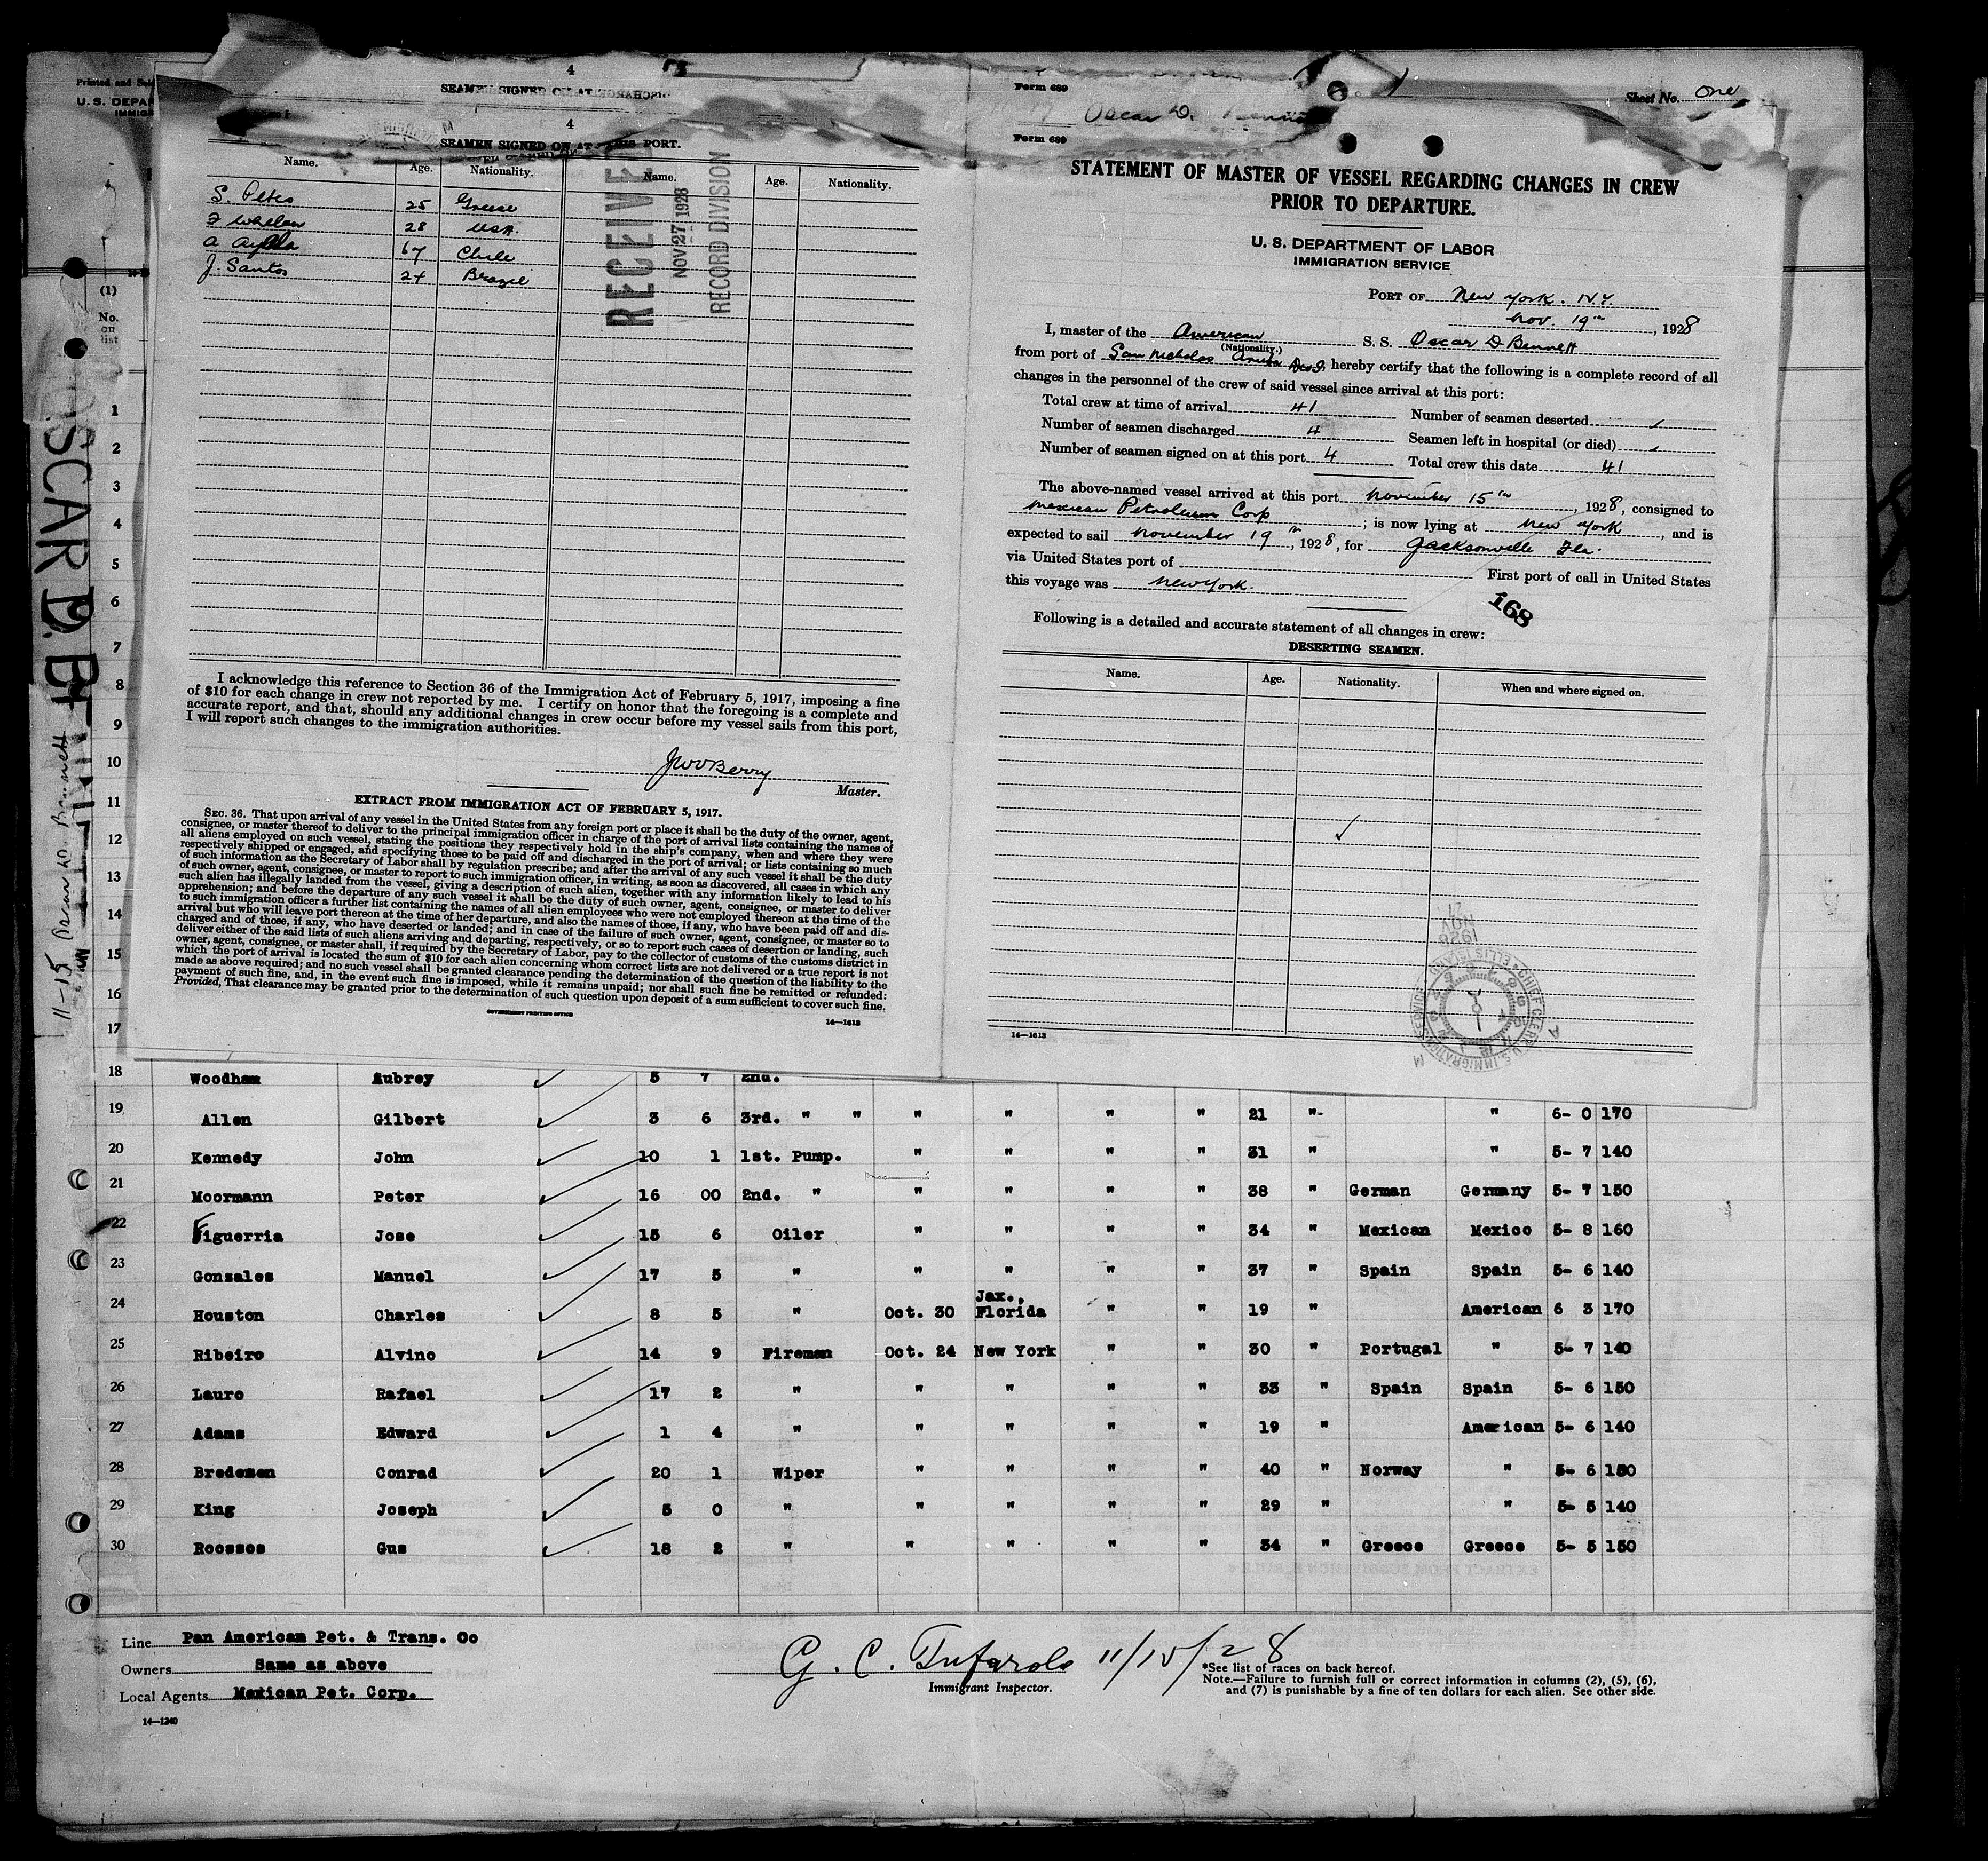 Printed and Sold
U. S. DEPA
IMMIG
4
SEAMEN SIGNED ON AT
4
SEAMEN SIGNED ON AT THIS PORT.
Name. Age. Nationality. Name. Age. Nationality.
S. Petes 25 Greese
F Whelan 28 USA.
A Ayala 67 Chile
J. Santos 24 Brazil
RECEIVED
NOV 27 1928
RECORD DIVISION
I acknowledge this reference to Section 36 of the Immigration Act of February 5, 1917, imposing a fine
of $10 for each change in crew not reported by me. I certify on honor that the foregoing is a complete and
accurate report, and that, should any additional changes in crew occur before my vessel sails from this port,
I will report such changes to the immigration authorities.
JWVBerry
Master.
EXTRACT FROM IMMIGRATION ACT OF FEBRUARY 5, 1917.
SEC. 36. That upon arrival of any vessel in the United States from any foreign port or place it shall be the duty of the owner, agent,
consignee, or master thereof to deliver to the principal immigration officer in charge of the port of arrival lists containing the names of
all aliens employed on such vessel, stating the positions they respectively hold in the ship's company, when and where they were
respectively shipped or engaged, and specifying those to be paid off and discharged in the port of arrival; or lists containing so much
of such information as the Secretary of Labor shall by regulation prescribe; and after the arrival of any such vessel it shall be the duty
of such owner, agent, consignee, or master to report to such immigration officer, in writing, as soon as discovered, all cases in which any
such alien has illegally landed from the vessel, giving a description of such alien, together with any information likely to lead to his
apprehension; and before the departure of any such vessel it shall be the duty of such owner, agent, consignee, or master to deliver
to such immigration officer a further list containing the names of all alien employees who were not employed thereon at the time of the
arrival but who will leave port thereon at the time of her departure, and also the names of those, if any, who have been paid off and dis-
charged and of those, if any, who have deserted or landed; and in case of the failure of such owner, agent, consignee, or master so to
deliver either of the said lists of such aliens arriving and departing, respectively, or so to report such cases of desertion or landing, such
owner, agent, consignee, or master shall, if required by the Secretary of Labor, pay to the collector of customs of the customs district in
which the port of arrival is located the sum of $10 for each alien concerning whom correct lists are not delivered or a true report is not
made as above required; and no such vessel shall be granted clearance pending the determination of the question of the liability to the
payment of such fine, and, in the event such fine is imposed, while it remains unpaid; nor shall such fine be remitted or refunded:
Provided, That clearance may be granted prior to the determination of such question upon deposit of a sum sufficient to cover such fine.
GOVERNMENT PRINTING OFFICE
14—1613
Form 689
Oscar D. Benn
Sheet No. One
Form 689
STATEMENT OF MASTER OF VESSEL REGARDING CHANGES IN CREW
PRIOR TO DEPARTURE.
U. S. DEPARTMENT OF LABOR
IMMIGRATION SERVICE
PORT OF New York. N.Y.
Nov. 19th, 1928
I, master of the American S. S. Oscar D Bennett
(Nationality.)
from port of San Nicholas Aruba DWI, hereby certify that the following is a complete record of all
changes in the personnel of the crew of said vessel since arrival at this port:
Total crew at time of arrival 41 Number of seamen deserted
Number of seamen discharged 4 Seamen left in hospital (or died)
Number of seamen signed on at this port 4 Total crew this date 41
The above-named vessel arrived at this port November 15th, 1928, consigned to
Mexican Petroleum Corp; is now lying at New York, and is
expected to sail November 19th, 1928, for Jacksonville Fla.
via United States port of First port of call in United States
this voyage was New York.
168
Following is a detailed and accurate statement of all changes in crew:
DESERTING SEAMEN.
Name. Age. Nationality. When and where signed on.
14—1613
(1)
No. on list
1
2
3
4
5
6
7
8
9
10
11
12
13
14
15
16
17
OSCAR D. BE
11-15 Oscar D. Bennett
18 Woodham Aubrey 5 7 2nd.
19 Allen Gilbert 3 6 3rd. " " " " " " 21 " " 6- 0 170
20 Kennedy John 10 1 1st. Pump. " " " " 31 " " 5- 7 140
21 Moormann Peter 16 00 2nd. " " " " " 38 " German Germany 5- 7 150
22 Figuerria Jose 15 6 Oiler " " " " 34 " Mexican Mexico 5- 8 160
23 Gonzales Manuel 17 5 " " " " " 37 " Spain Spain 5- 6 140
24 Houston Charles 8 5 " Oct. 30 Jax., Florida " " 19 " American 6 3 170
25 Ribeiro Alvino 14 9 Fireman Oct. 24 New York " " 30 " Portugal " 5- 7 140
26 Lauro Rafael 17 2 " " " " " 33 " Spain Spain 5- 6 150
27 Adams Edward 1 4 " " " " " 19 " American 5- 6 140
28 Bredesen Conrad 20 1 Wiper " " " " 40 " Norway " 5- 6 150
29 King Joseph 5 0 " " " " " 29 " " 5- 5 140
30 Roossos Gus 18 2 " " " " " 34 " Greece Greece 5- 5 150
Line Pan American Pet. & Trans. Co
Owners Same as above
Local Agents Mexican Pet. Corp.
14—1240
G. C. Tufarolo 11/15/28
Immigrant Inspector.
*See list of races on back hereof.
Note.—Failure to furnish full or correct information in columns (2), (5), (6),
and (7) is punishable by a fine of ten dollars for each alien. See other side.